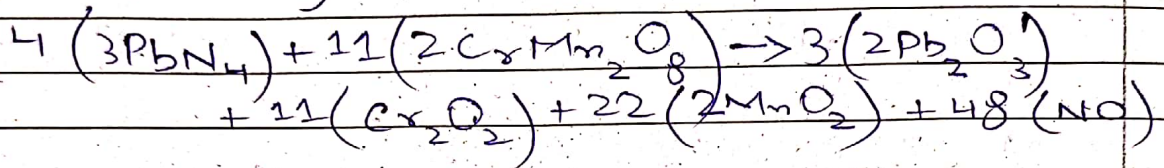 4 (3PbN₄) + 11 (2 CrMn₂O₈) → 3 (2Pb₂O₃)
+ 11 (Cr₂O₂) + 22 (2MnO₂) + 48 (NO)